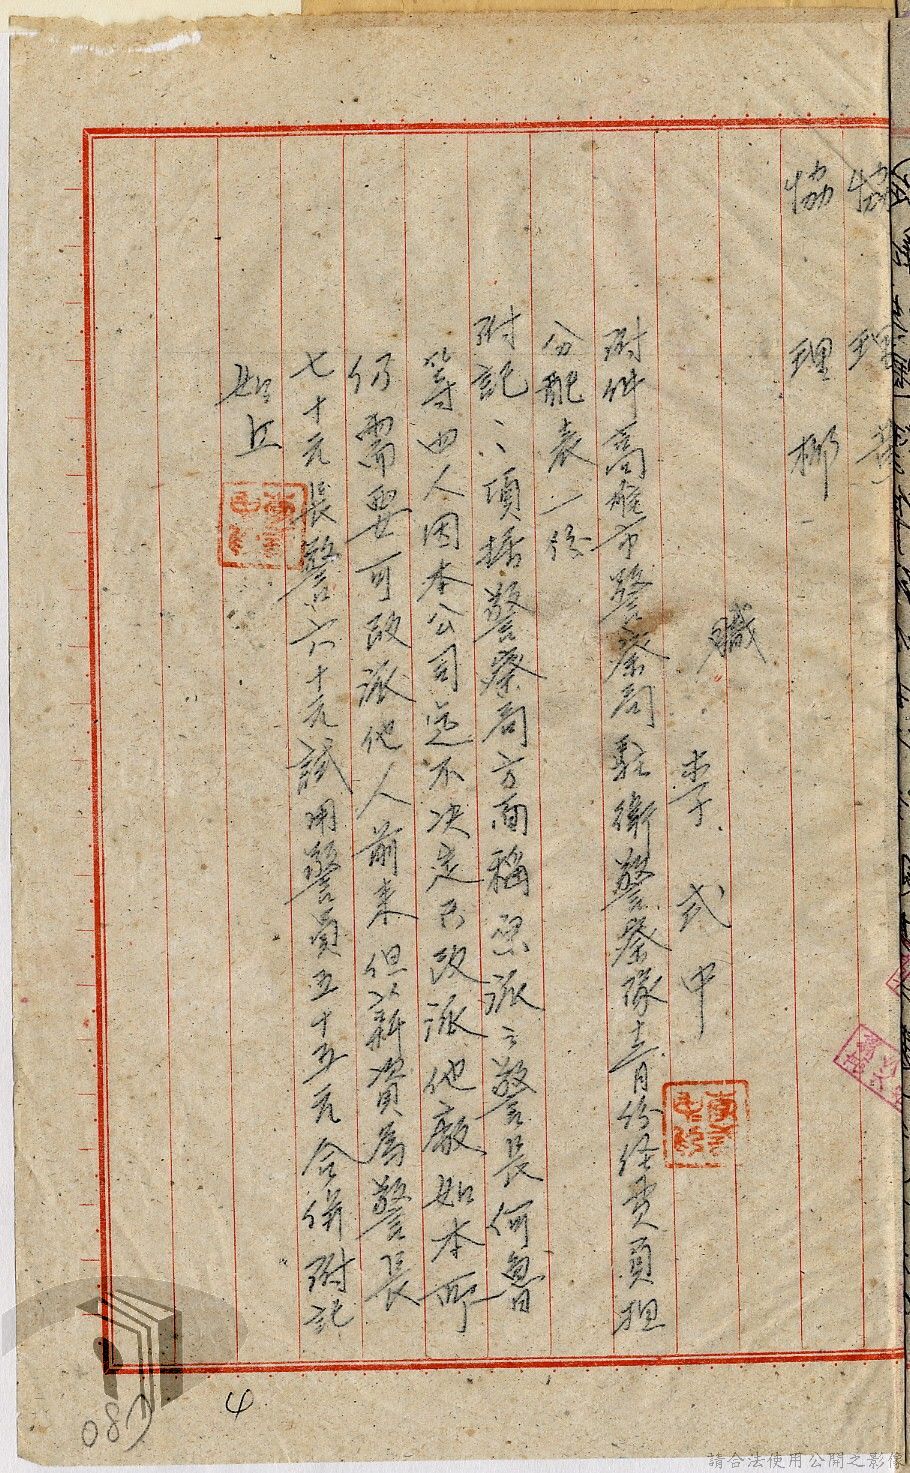 協理
協理 柳
職 李式中
附件高雄市警察局駐衛警察隊十一月份经費負担
分配表一份
附記：頃據警察局方面稱原派之警長何魯
等四人因本公司迄不决定已改派他廠如本所
仍需要可改派他人前来但薪資為警長
七十元長警六十元試用警員五十五元合併附記
如上
4
080
請合法使用公開之影像